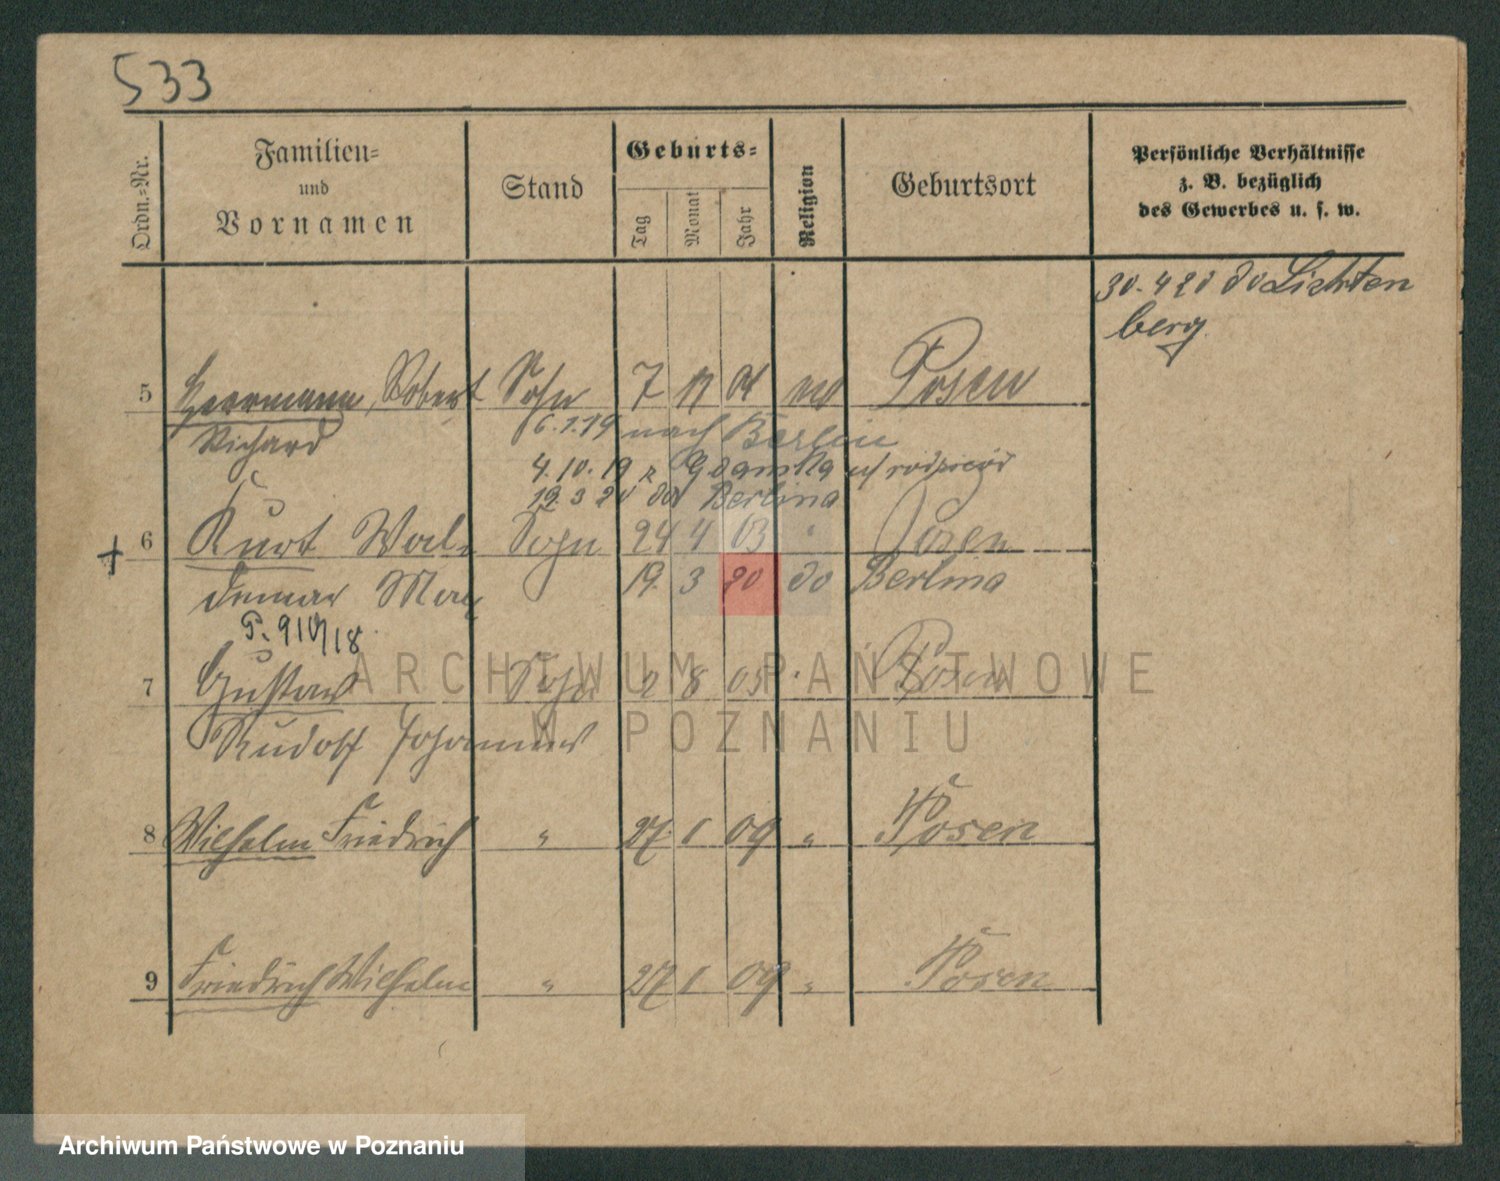 533
Ordn.-Nr.
Familien-
und
Vornamen
Stand
Geburts-
Tag
Monat
Jahr
Religion
Geburtsort
Persönliche Verhältnisse
z. B. bezüglich
des Gewerbes u. s. w.
30. 4 20 do Lichten
berg
5 Herrmann, Robert Sohn 7 04 Posen
Richard 6.1.19 nach Berlin
4. 10. 19 z Gdańska
19. 3 20 do Berlina
6 Kurt Wal- Sohn 24 4 03 " Posen
demar Max 19. 3 20 do Berlina
P. 910/18
7 Gustav Sohn 2 8 05 " Posen
Rudolf Johannes
8 Wilhelm Friedrich " 27 1 09 " Posen
9 Friedrich Wilhelm " 27 1 09 " Posen
ARCHIWUM PAŃSTWOWE
W POZNANIU
Archiwum Państwowe w Poznaniu